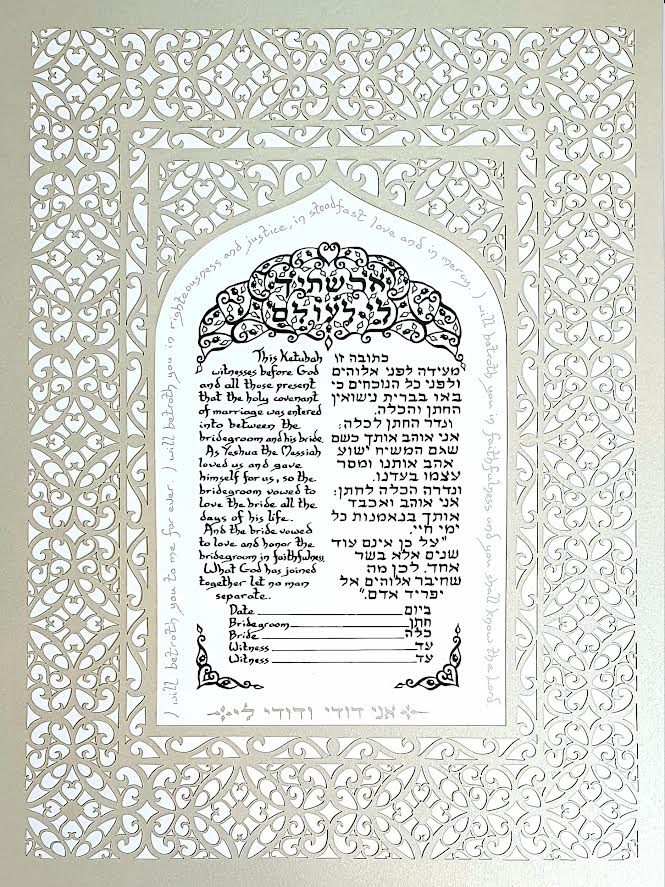 I will betroth you to me for ever. I will betroth you in righteousness and justice, in steadfast love and in mercy, I will betroth you in faithfulness and you shall know the Lord
וארשתיך
לי לעולם
This Ketubah
witnesses before God
and all those present
that the holy covenant
of marriage was entered
into between the
bridegroom and his bride.
As Yeshua the Messiah
loved us and gave
himself for us, so the
bridegroom vowed to
love the bride all the
days of his life.
And the bride vowed
to love and honor the
bridegroom in faithfulness
What God has joined
together let no man
separate.
כתובה זו
מעידה לפני אלוהים
ולפני כל הנוכחים כי
באו בברית נישואין
החתן והכלה.
ונדר החתן לכלה:
אני אוהב אותך כשם
שגם המשיח ישוע
אהב אותנו ומסר
עצמו בעדנו.
ונדרה הכלה לחתן:
אני אוהב ואכבד
אותך בנאמנות כל
ימי חיי.
"על כן אינם עוד
שנים אלא בשר
אחד. לכן מה
שחיבר אלוהים אל
יפריד אדם."
Date ביום
Bridegroom חתן
Bride כלה
Witness עד
Witness עד
אני דודי ודודי לי